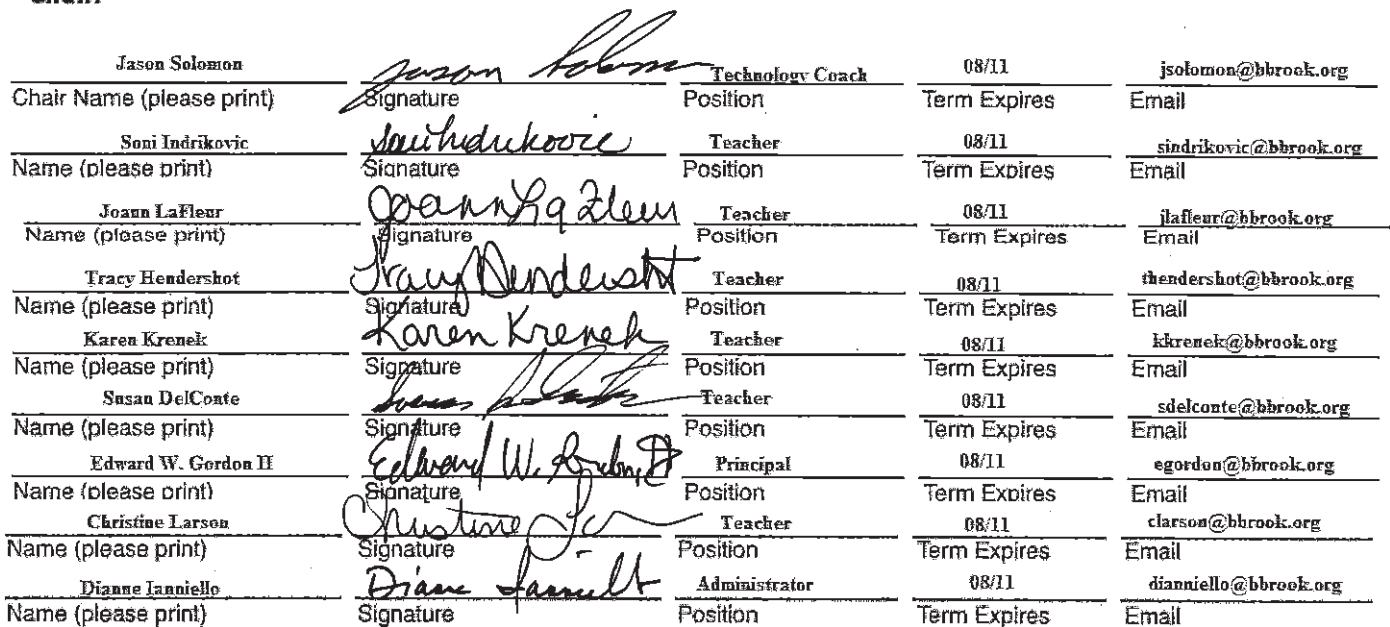 Jason Solomon Jason Solomon Technology Coach 08/11 jsolomon@bbrook.org
Chair Name (please print) Signature Position Term Expires Email
Soni Indrikovic Soni Indrikovic Teacher 08/11 sindrikovic@bbrook.org
Name (please print) Signature Position Term Expires Email
Joann LaFleur Joann La Fleur Teacher 08/11 jlafleur@bbrook.org
Name (please print) Signature Position Term Expires Email
Tracy Hendershot Tracy Hendershot Teacher 08/11 thendershot@bbrook.org
Name (please print) Signature Position Term Expires Email
Karen Krenek Karen Krenek Teacher 08/11 kkrenek@bbrook.org
Name (please print) Signature Position Term Expires Email
Susan DelConte Teacher 08/11 sdelconte@bbrook.org
Name (please print) Signature Position Term Expires Email
Edward W. Gordon II Edward W. Gordon, II Principal 08/11 egordon@bbrook.org
Name (please print) Signature Position Term Expires Email
Christine Larson Christine Teacher 08/11 clarson@bbrook.org
Name (please print) Signature Position Term Expires Email
Dianne Ianniello Diane Ianniello Administrator 08/11 dianniello@bbrook.org
Name (please print) Signature Position Term Expires Email